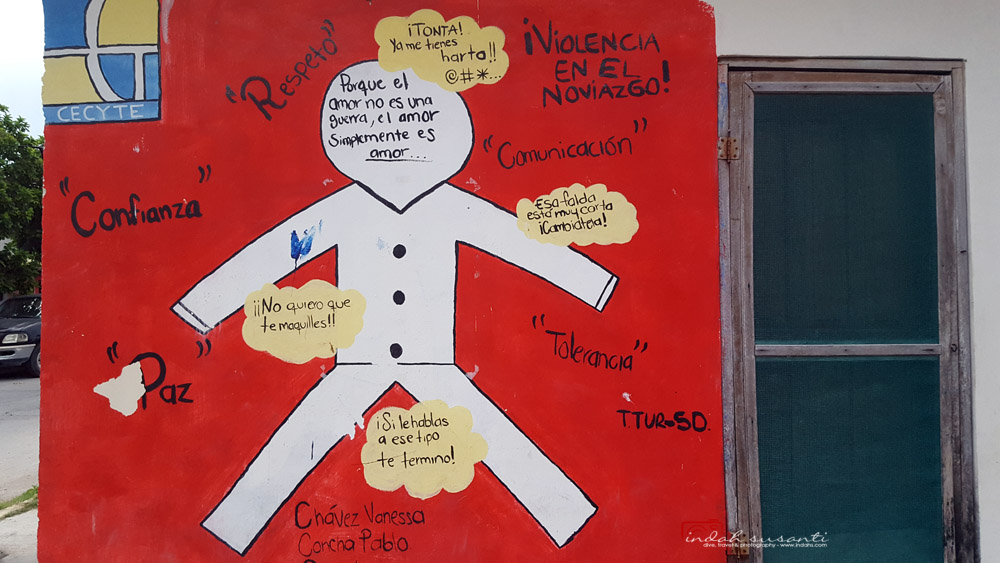 CECYTE
"Respeto"
¡TONTA!
Ya me tienes
harta!!
@#*...
¡VIOLENCIA
EN EL
NOVIAZGO!
Porque el
amor no es una
guerra, el amor
Simplemente es
amor...
"Comunicación"
"Confianza"
Esa falda
está muy corta
¡Cambiatela!
¡¡No quiero que
te maquilles!!
"Tolerancia"
"Paz"
T.TUR-5D.
¡Si le hablas
a ese tipo
te termino!
Chávez Vanessa
Concha Pablo
indah susanti
dive, travel & photography - www.indahs.com